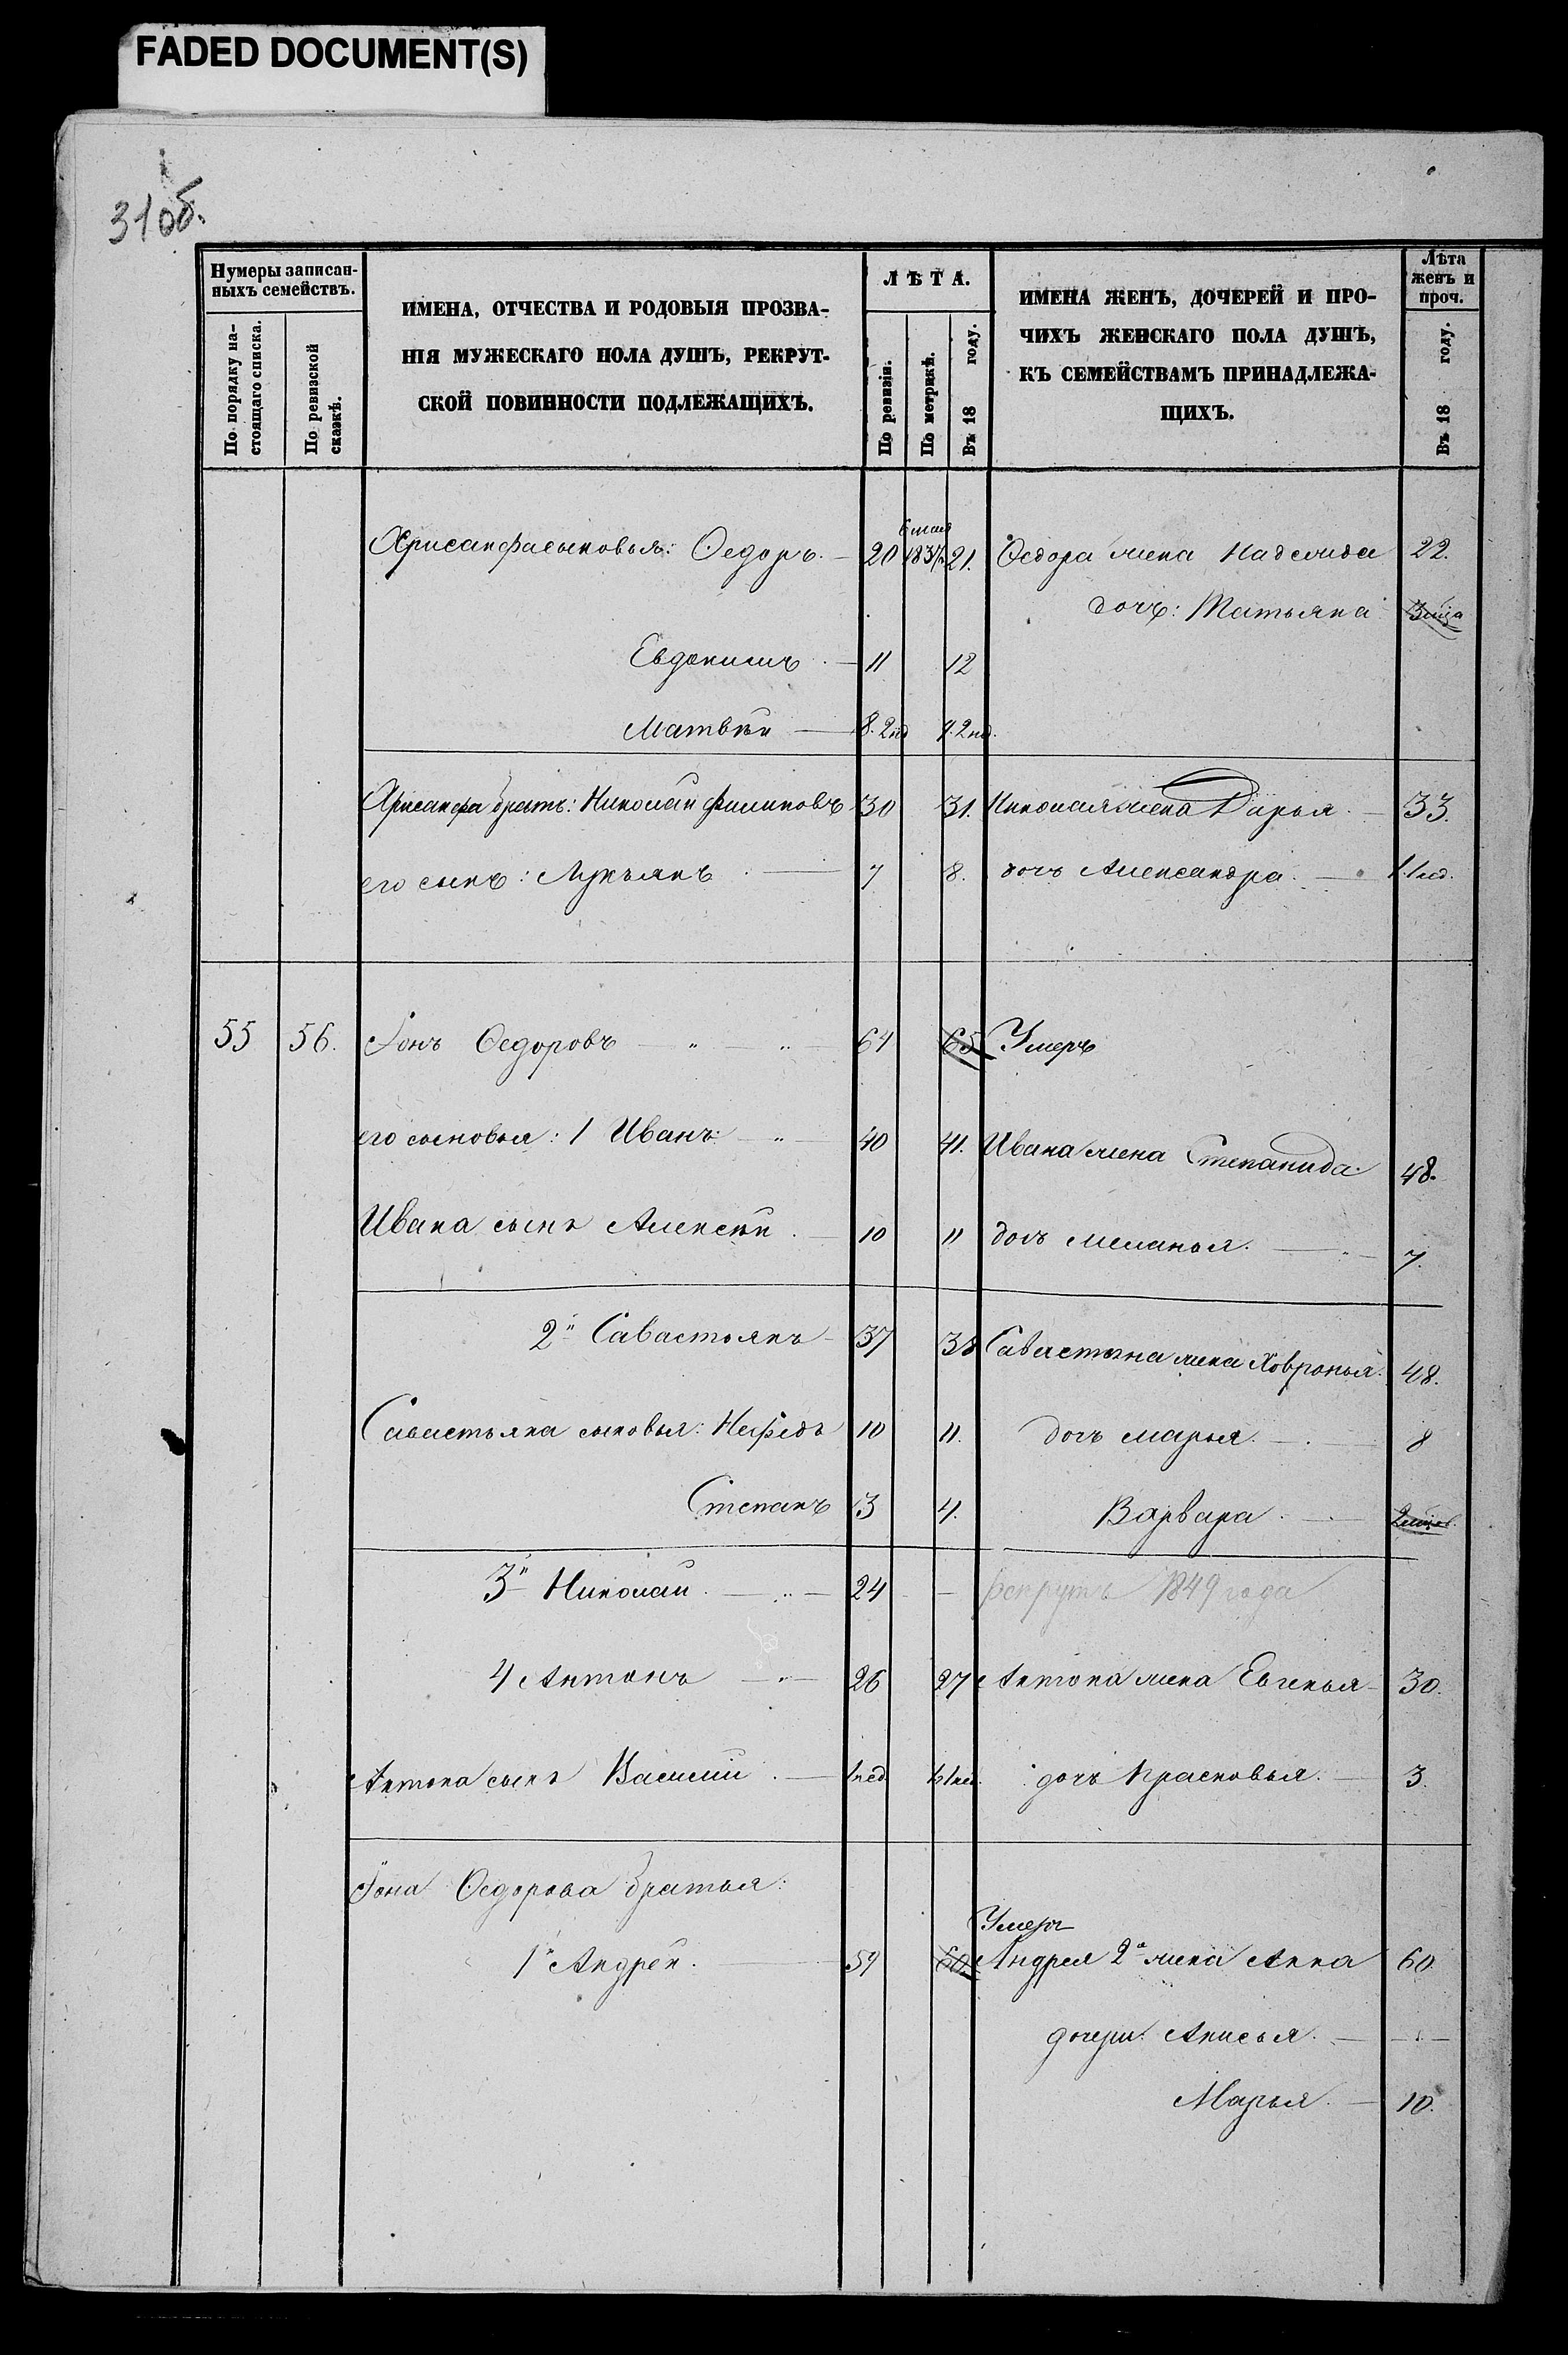 FADED DOCUMENT(S)
31об.
Нумеры записан-
ныхъ семействъ.
По порядку на-
стоящаго списка.
По ревизской
сказкѣ.
ИМЕНА, ОТЧЕСТВА И РОДОВЫЯ ПРОЗВА-
НІЯ МУЖЕСКАГО ПОЛА ДУШЪ, РЕКРУТ-
СКОЙ ПОВИННОСТИ ПОДЛЕЖАЩИХЪ.
ЛѢТА.
По ревизіи.
По метрикѣ.
Въ 18 году.
ИМЕНА ЖЕНЪ, ДОЧЕРЕЙ И ПРО-
ЧИХЪ ЖЕНСКАГО ПОЛА ДУШЪ,
КЪ СЕМЕЙСТВАМЪ ПРИНАДЛЕЖА-
ЩИХЪ.
Лѣта
женъ и
проч.
Въ 18 году.
Хрисанфа сыновья: Ѳедоръ. 20 21. Ѳедора жена Надежда 22.
дочь: Татьяна
Евдокимъ 11 12
Матвѣй 8. 2 нд 9. 2 нд.
Хрисанфа братъ: Николай Филиповъ 30 31. Николая жена Дарья 33.
его сынъ: Лукьянъ 7 8. дочь Александра 1. 1 нд.
55 56. Іонъ Ѳедоровъ 64 65 Умеръ
его сыновья: 1 Иванъ 40 41. Ивана жена Степанида 48.
Ивана сынъ Алексѣй 10 11 дочь Меланья. 7.
2й Савастьянъ 37 38 Савастьяна жена Ховронья 48.
Савастьяна сыновья: Нефедъ 10 11. дочь Марья 8
Степанъ 3 4. Варвара
3й Николай 24 — рекрутъ 1849 года
4 Антонъ 26 27 Антона жена Евгенья 30.
Антона сынъ Василій 1 нед. 1. 1 нед. дочь Прасковья 3.
Іона Ѳедорова братья:
Умеръ
1й Андрей. 59 60 Андрея 2я жена Анна 60.
дочери: Анисья —
Марья 10.